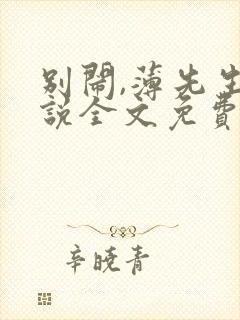 別鬧,薄先生
說全文免費
辛曉青